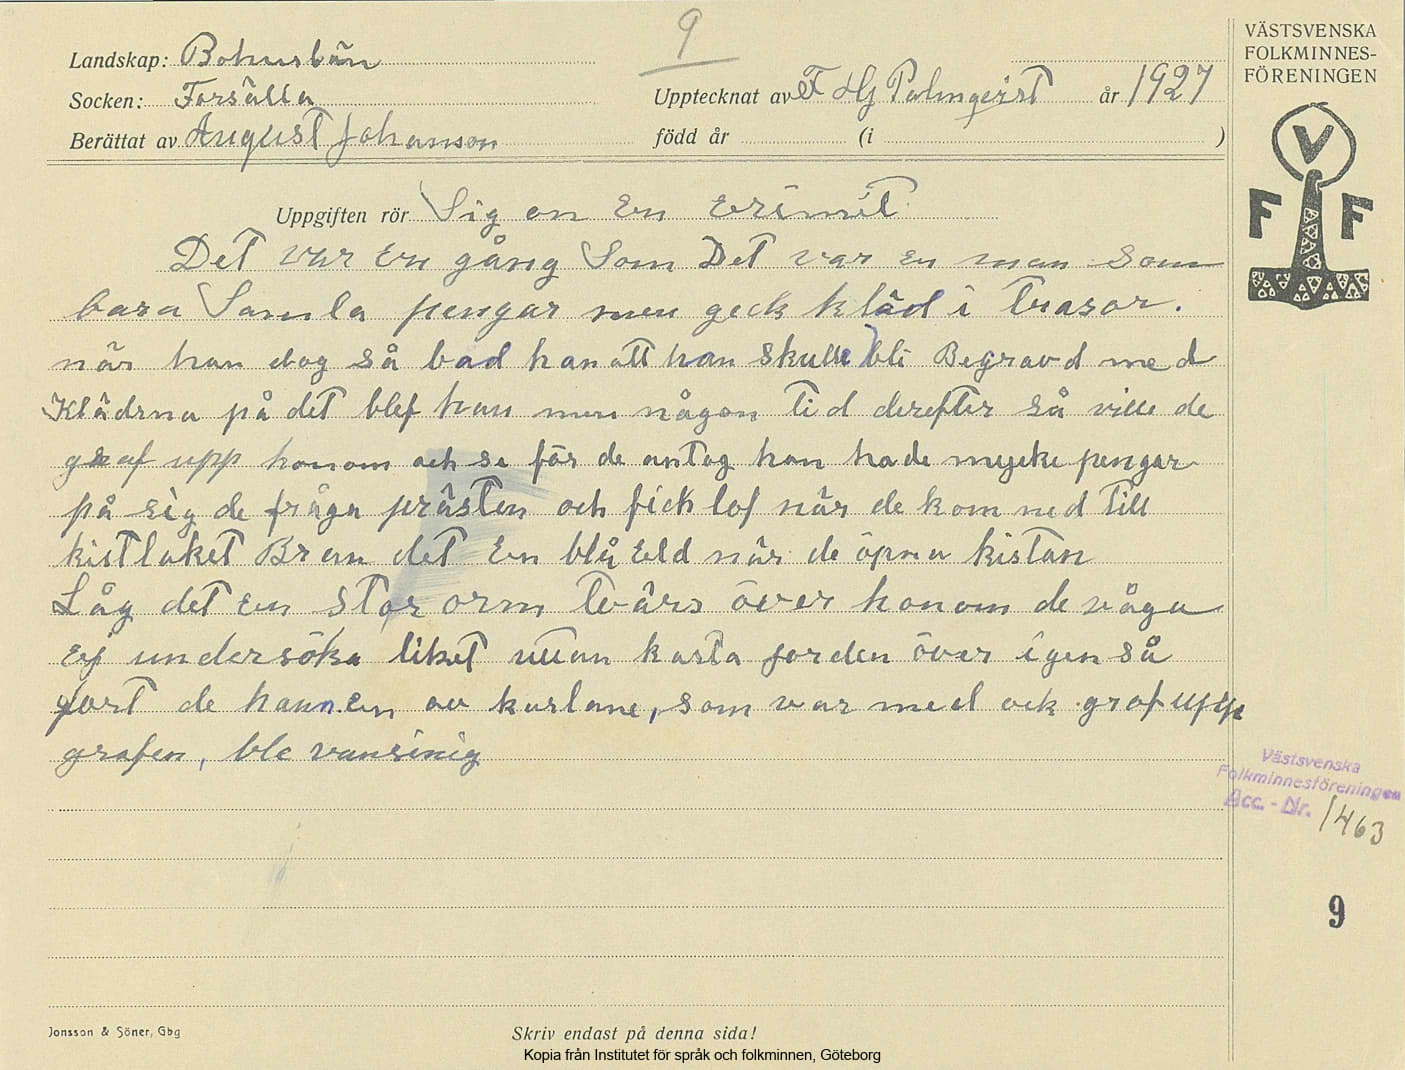 9
Landskap: Bohuslän
Socken: Forsälla
Upptecknat av F Hj Palmqvist år 1927
Berättat av August Johanson
född år (i )
Uppgiften rör Sig om En Erimit
Det var En gång Som Det var En man som
bara Samla pengar men geck kläd i Trasor.
när han dog så bad han att han skulle bli Begravd med
Klädrna på det blef han men någon tid derefter så ville de
graf upp honom och se för de antog han hade mycke pengar
på sig de fråga prästen och fick lof når de kom ned Till
kistlaket Bran det En blå Eld når de öpna kistan
Låg det En stor orm Tvärs över honom de våga
Ej undersöka liket utan kasta jorden över igen så
fort de hann. En av karlane, som var med ock graf upp
grafen, ble vansinig
VÄSTSVENSKA
FOLKMINNES-
FÖRENINGEN
V
F F
Västsvenska
Folkminnesföreningen
Acc. - Nr. 1463
9
Jonsson & Söner, Gbg
Skriv endast på denna sida!
Kopia från Institutet för språk och folkminnen, Göteborg